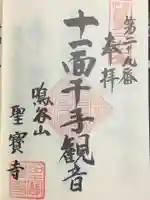 第二十九番
奉拝
十一面千手観音
鳴谷山
聖寳寺